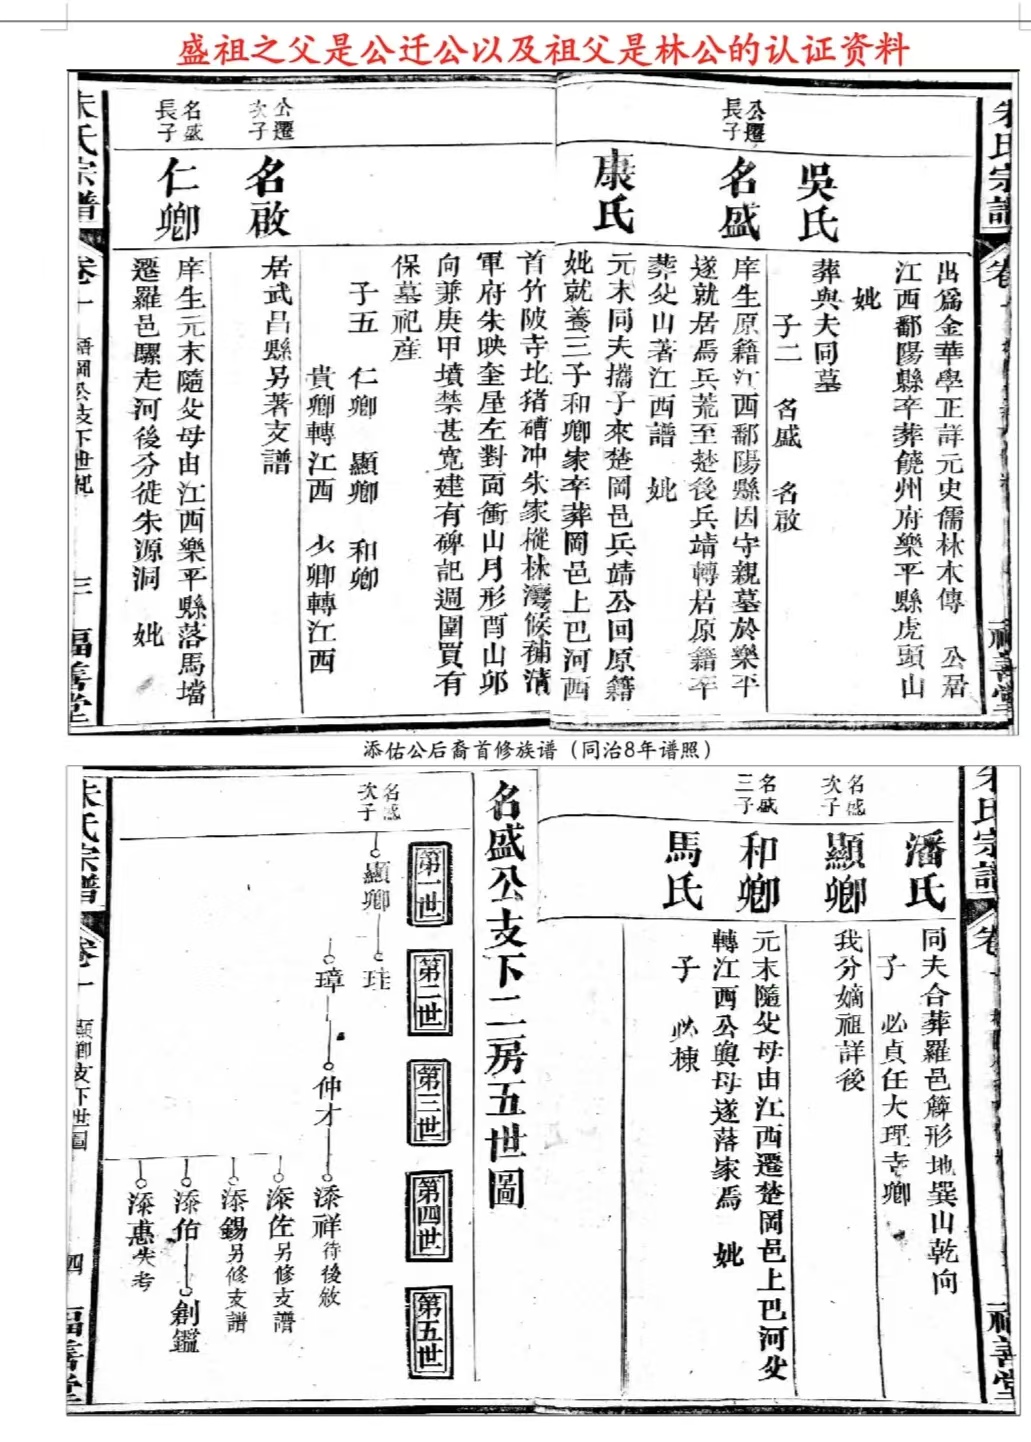 盛祖之父是公迁公以及祖父是林公的认证资料
朱氏宗譜
卷一
福善堂
出爲金華學正詳元史儒林本傳 公居
江西鄱陽縣卒葬饒州府樂平縣虎頭山
妣
吳氏
葬與夫同墓
子二 名盛 名啟
公遷
長子
名盛
庠生原籍江西鄱陽縣因守親墓於樂平
遂就居焉兵荒至楚後兵靖轉居原籍卒
葬父山著江西譜 妣
康氏
元末同夫攜子來楚岡邑兵靖公回原籍
妣就養三子和卿家卒葬岡邑上巴河西
首竹陂寺北猪磧冲朱家樅林灣候補清
軍府朱映奎屋左對面衝山月形酉山卯
向兼庚甲墳禁甚寬建有碑記週圍買有
保墓祀産
子五 仁卿 顯卿 和卿
貴卿轉江西 少卿轉江西
公遷
次子
名啟
居武昌縣另著支譜
名盛
長子
仁卿
庠生元末隨父母由江西樂平縣落馬壋
遷羅邑騾走河後分徙朱源洞 妣
朱氏宗譜
卷一
支下世紀
三
福善堂
添佑公后裔首修族谱（同治8年谱照）
朱氏宗譜
卷一
福善堂
潘氏
同夫合葬羅邑觧形地巽山乾向
子 必貞任大理寺卿
名盛
次子
顯卿
我分嫡祖詳後
名盛
三子
和卿
元末隨父母由江西遷楚岡邑上巴河父
轉江西公與母遂落家焉 妣
馬氏
子 必棟
名盛公支下二房五世圖
第一世
第二世
第三世
第四世
第五世
名盛
次子
顯卿
珪
璋
仲才
添祥待後敘
添佐另修支譜
添錫另修支譜
添佑
創鑑
添惠失考
朱氏宗譜
卷一
顯卿支下世圖
四
福善堂